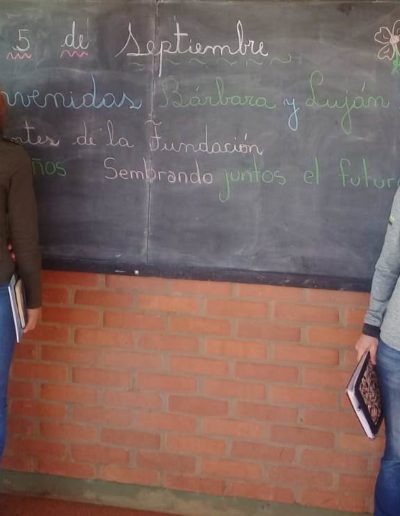 5 de Septiembre
venidas Bárbara y Luján
ntes de la Fundación
ños Sembrando juntos el futuro